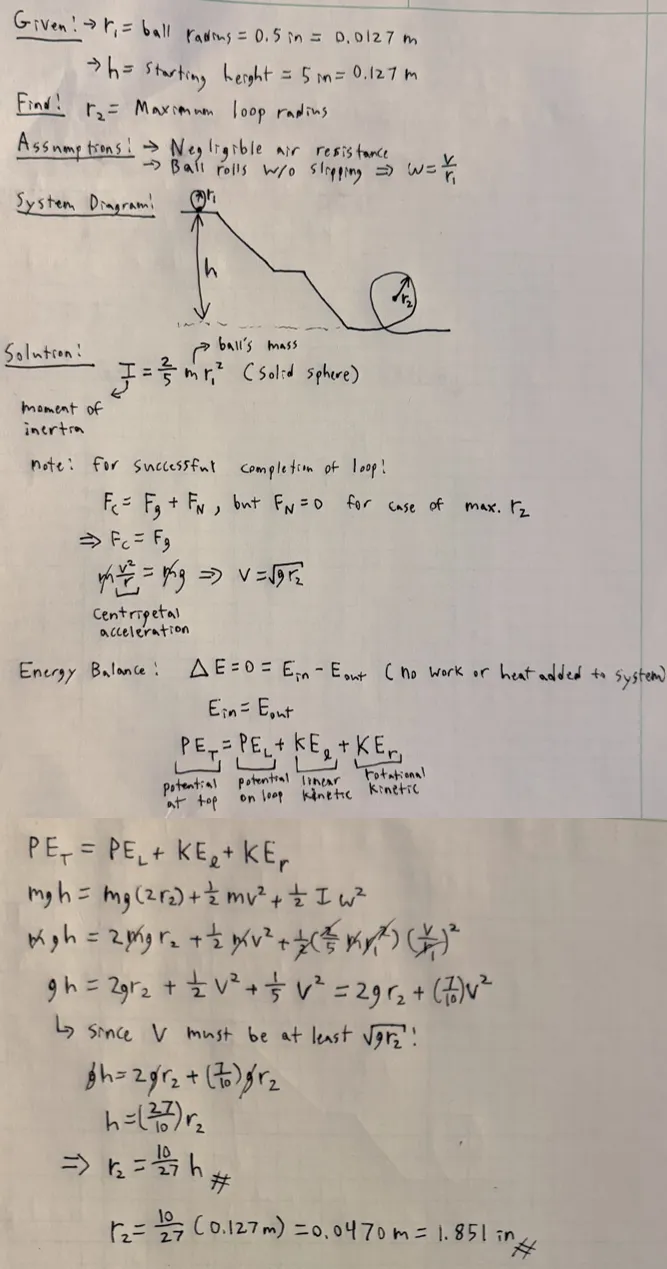 Given! → r₁ = ball radius = 0.5 in = 0.0127 m
→ h = starting height = 5 in = 0.127 m
Find! r₂ = Maximum loop radius
Assumptions! → Negligible air resistance
→ Ball rolls w/o slipping ⇒ ω = v/r₁
System Diagram!
r₁
h
r₂
Solution!
→ ball's mass
I = 2/5 m r₁² (Solid sphere)
moment of
inertia
note: for successful completion of loop!
F_C = F_g + F_N, but F_N = 0 for case of max. r₂
⇒ F_C = F_g
m v²/r = mg ⇒ v = √gr₂
centripetal
acceleration
Energy Balance: ΔE = 0 = E_in - E_out (no work or heat added to system)
E_in = E_out
PE_T = PE_L + KE_ℓ + KE_r
potential potential linear rotational
at top on loop kinetic kinetic
PE_T = PE_L + KE_ℓ + KE_r
mgh = mg(2r₂) + 1/2 mv² + 1/2 I ω²
mgh = 2mgr₂ + 1/2 mv² + 1/2 (2/5 mr₁²)(v/r₁)²
gh = 2gr₂ + 1/2 v² + 1/5 v² = 2gr₂ + (7/10)v²
↳ since v must be at least √gr₂!
gh = 2gr₂ + (7/10)gr₂
h = (27/10)r₂
⇒ r₂ = 10/27 h #
r₂ = 10/27 (0.127m) = 0.0470 m = 1.851 in #